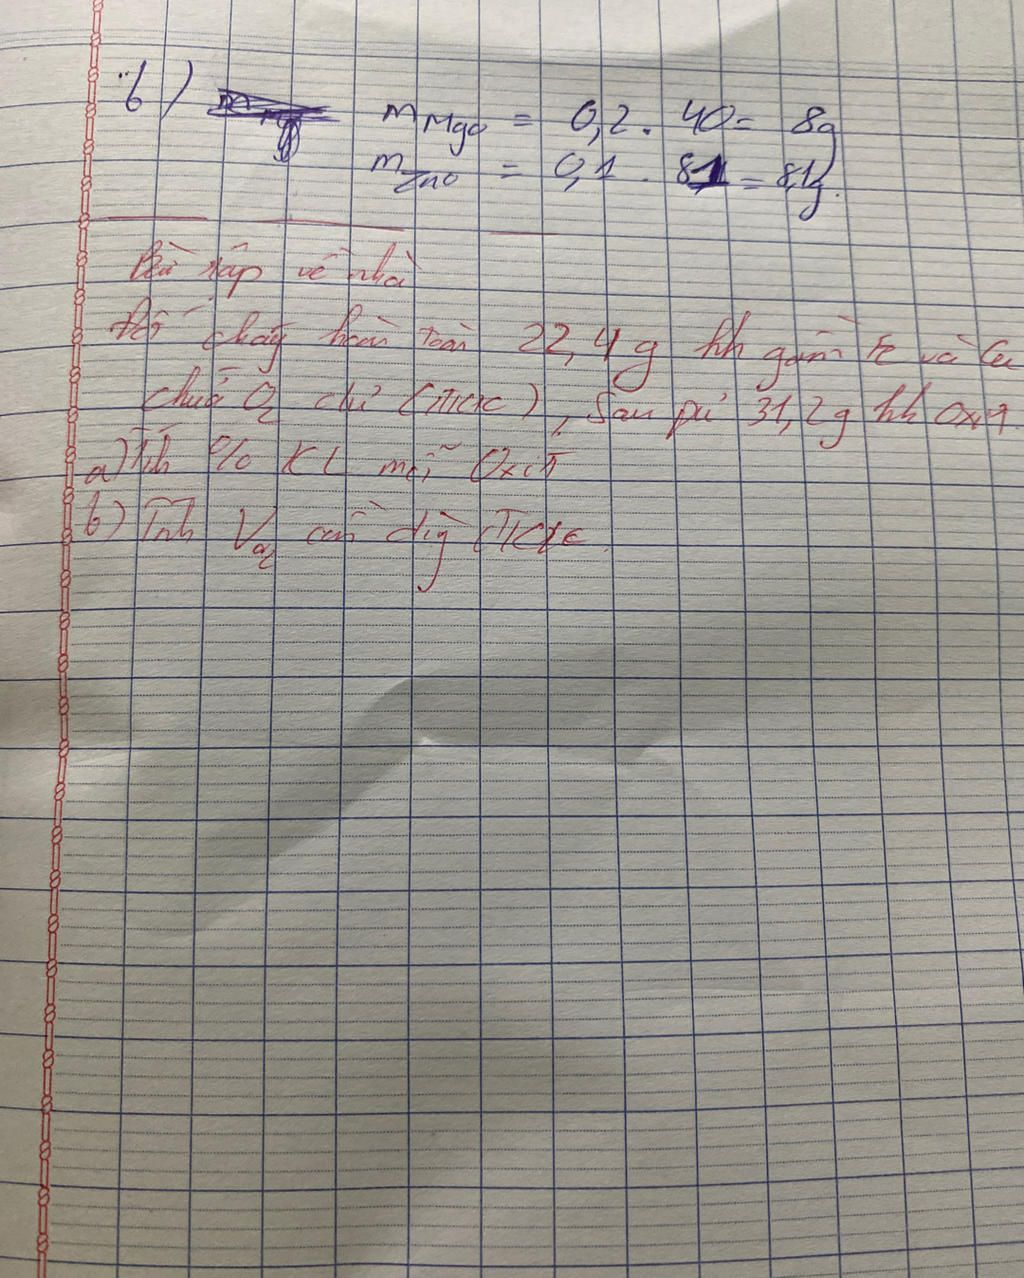 b) m MgO = 0,2. 40 = 8g
m ZnO = 0,1. 81 = 8,1g.
Bài tập về nhà
Đốt cháy hoàn toàn 22,4g hh gồm Fe và Cu
chứa O2 dư (đktc), sau pứ 31,2g hh oxit
a) Tính % KL mỗi Oxit
b) Tính VO2 cần dùng đktc.